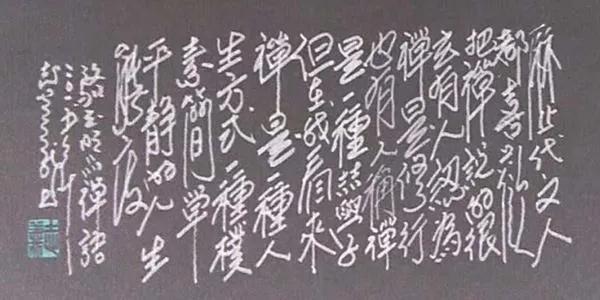 代文人
都喜歡
把禪說的很
玄有人認為
禪是修行
也有人稱禪
是一種哲學
但在我看來
禪是一種人
生方式一種樸
素簡單
平靜的人生
態度
禪語